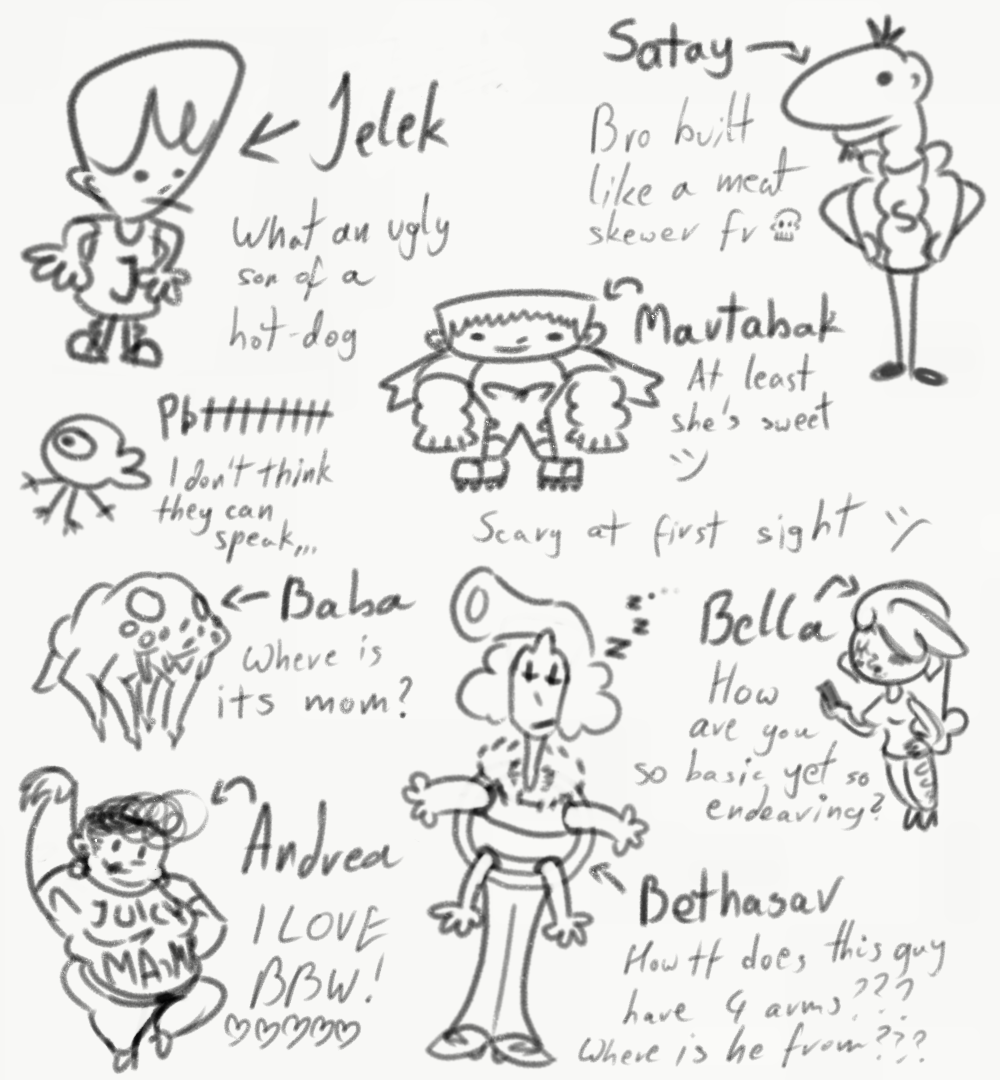 Jelek
What an ugly
son of a
hot-dog
J
Satay
Bro built
like a meat
skewer fr
S
Martabak
At least
she's sweet
Scary at first sight
I don't think
they can
speak,,,
Baba
Where is
its mom?
Z Z Z
Bella
How
are you
so basic yet so
endearing?
Andrea
I LOVE
BBW!
JUICY
MAIN
Bethasar
How tf does this guy
have 4 arms???
Where is he from???